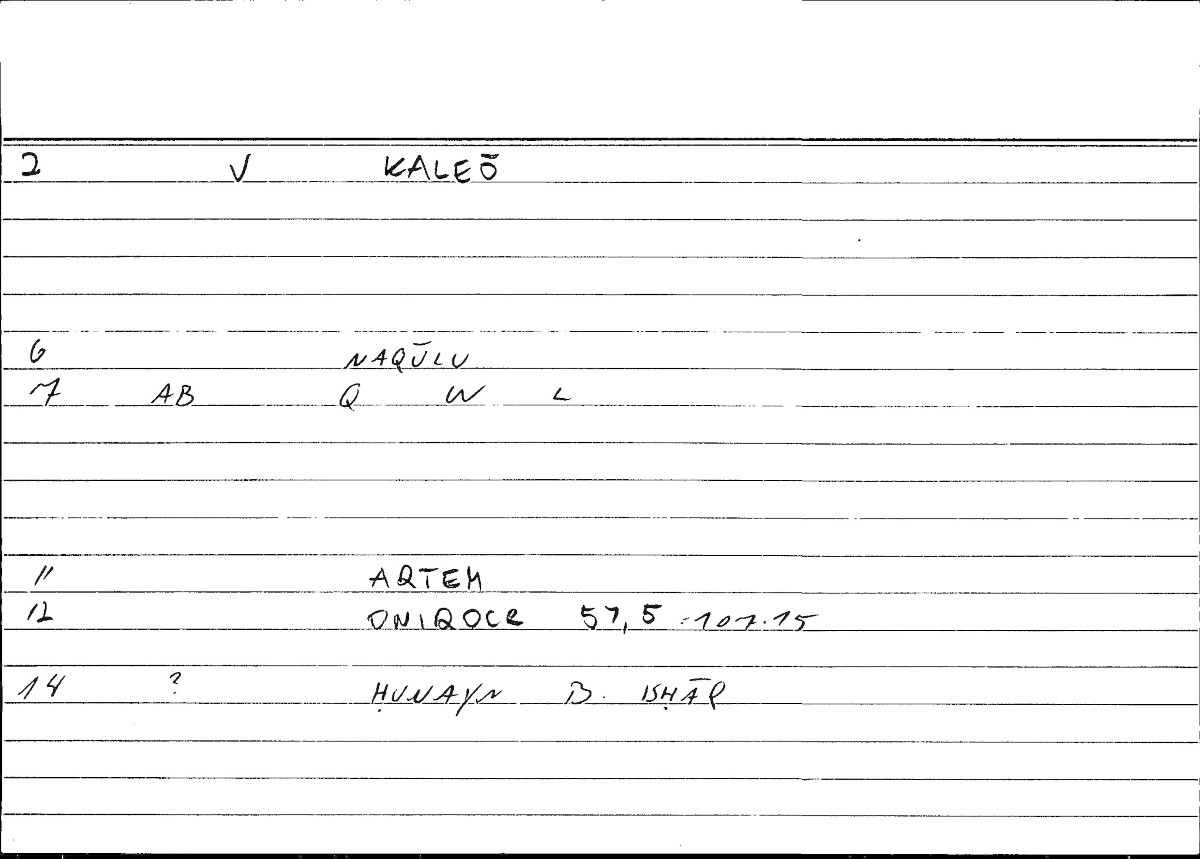 2 V KALEŌ
6 NAQŪLU
7 AB Q W L
11 ARTEM
12 ONIROCR 57,5 = 107.15
14 ? ḤUNAYN B. ISḤĀQ